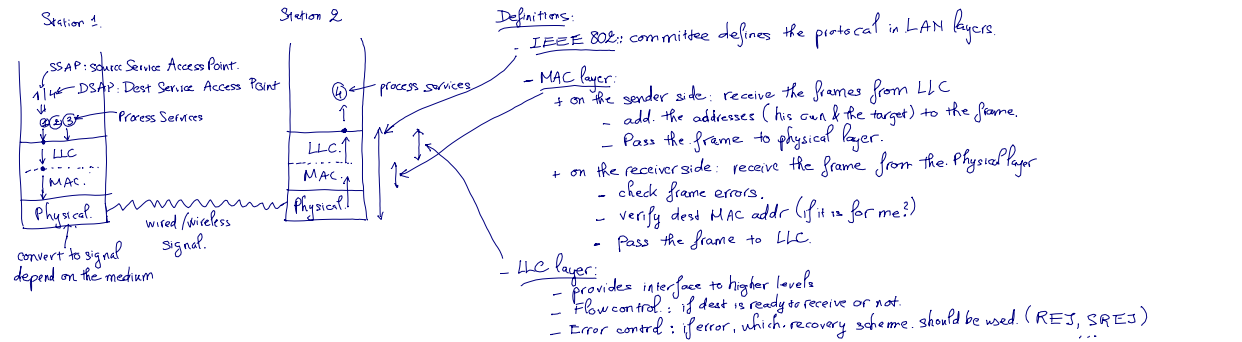 Station 1.
SSAP: source Service Access Point.
1 | 4 DSAP: Dest Service Access Point
1 2 3 Process Services
LLC
MAC.
Physical.
convert to signal
depend on the medium
wired/wireless
signal.
Station 2
4 process services
LLC.
MAC.
Physical.
Definitions:
- IEEE 802: committee defines the protocal in LAN layers.
- MAC layer:
+ on the sender side: receive the frames from LLC
- add. the addresses (his own & the target) to the frame.
- Pass the frame to physical layer.
+ on the receiver side: receive the frame from the Physical layer
- check frame errors.
- verify dest MAC addr (if it is for me?)
- Pass the frame to LLC.
- LLC layer:
- provides interface to higher levels
- Flow control: if dest is ready to receive or not.
- Error control: if error, which recovery scheme should be used. (REJ, SREJ)
...